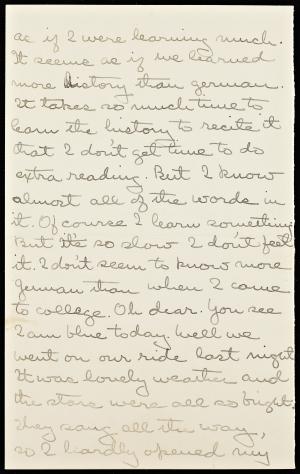 as if I were learning much.
It seems as if we learned
more history than german.
It takes so much time to
learn the history to recite it
that I don't get time to do
extra reading. But I know
almost all of the words in
it. Of course I learn something
But it's so slow I don't feel
it. I don't seem to know more
german than when I came
to college. Oh dear. You see
I am blue today. Well we
went on our ride last night
It was lovely weather and
the stars were all so bright,
They sang all the way,
so I hardly opened my